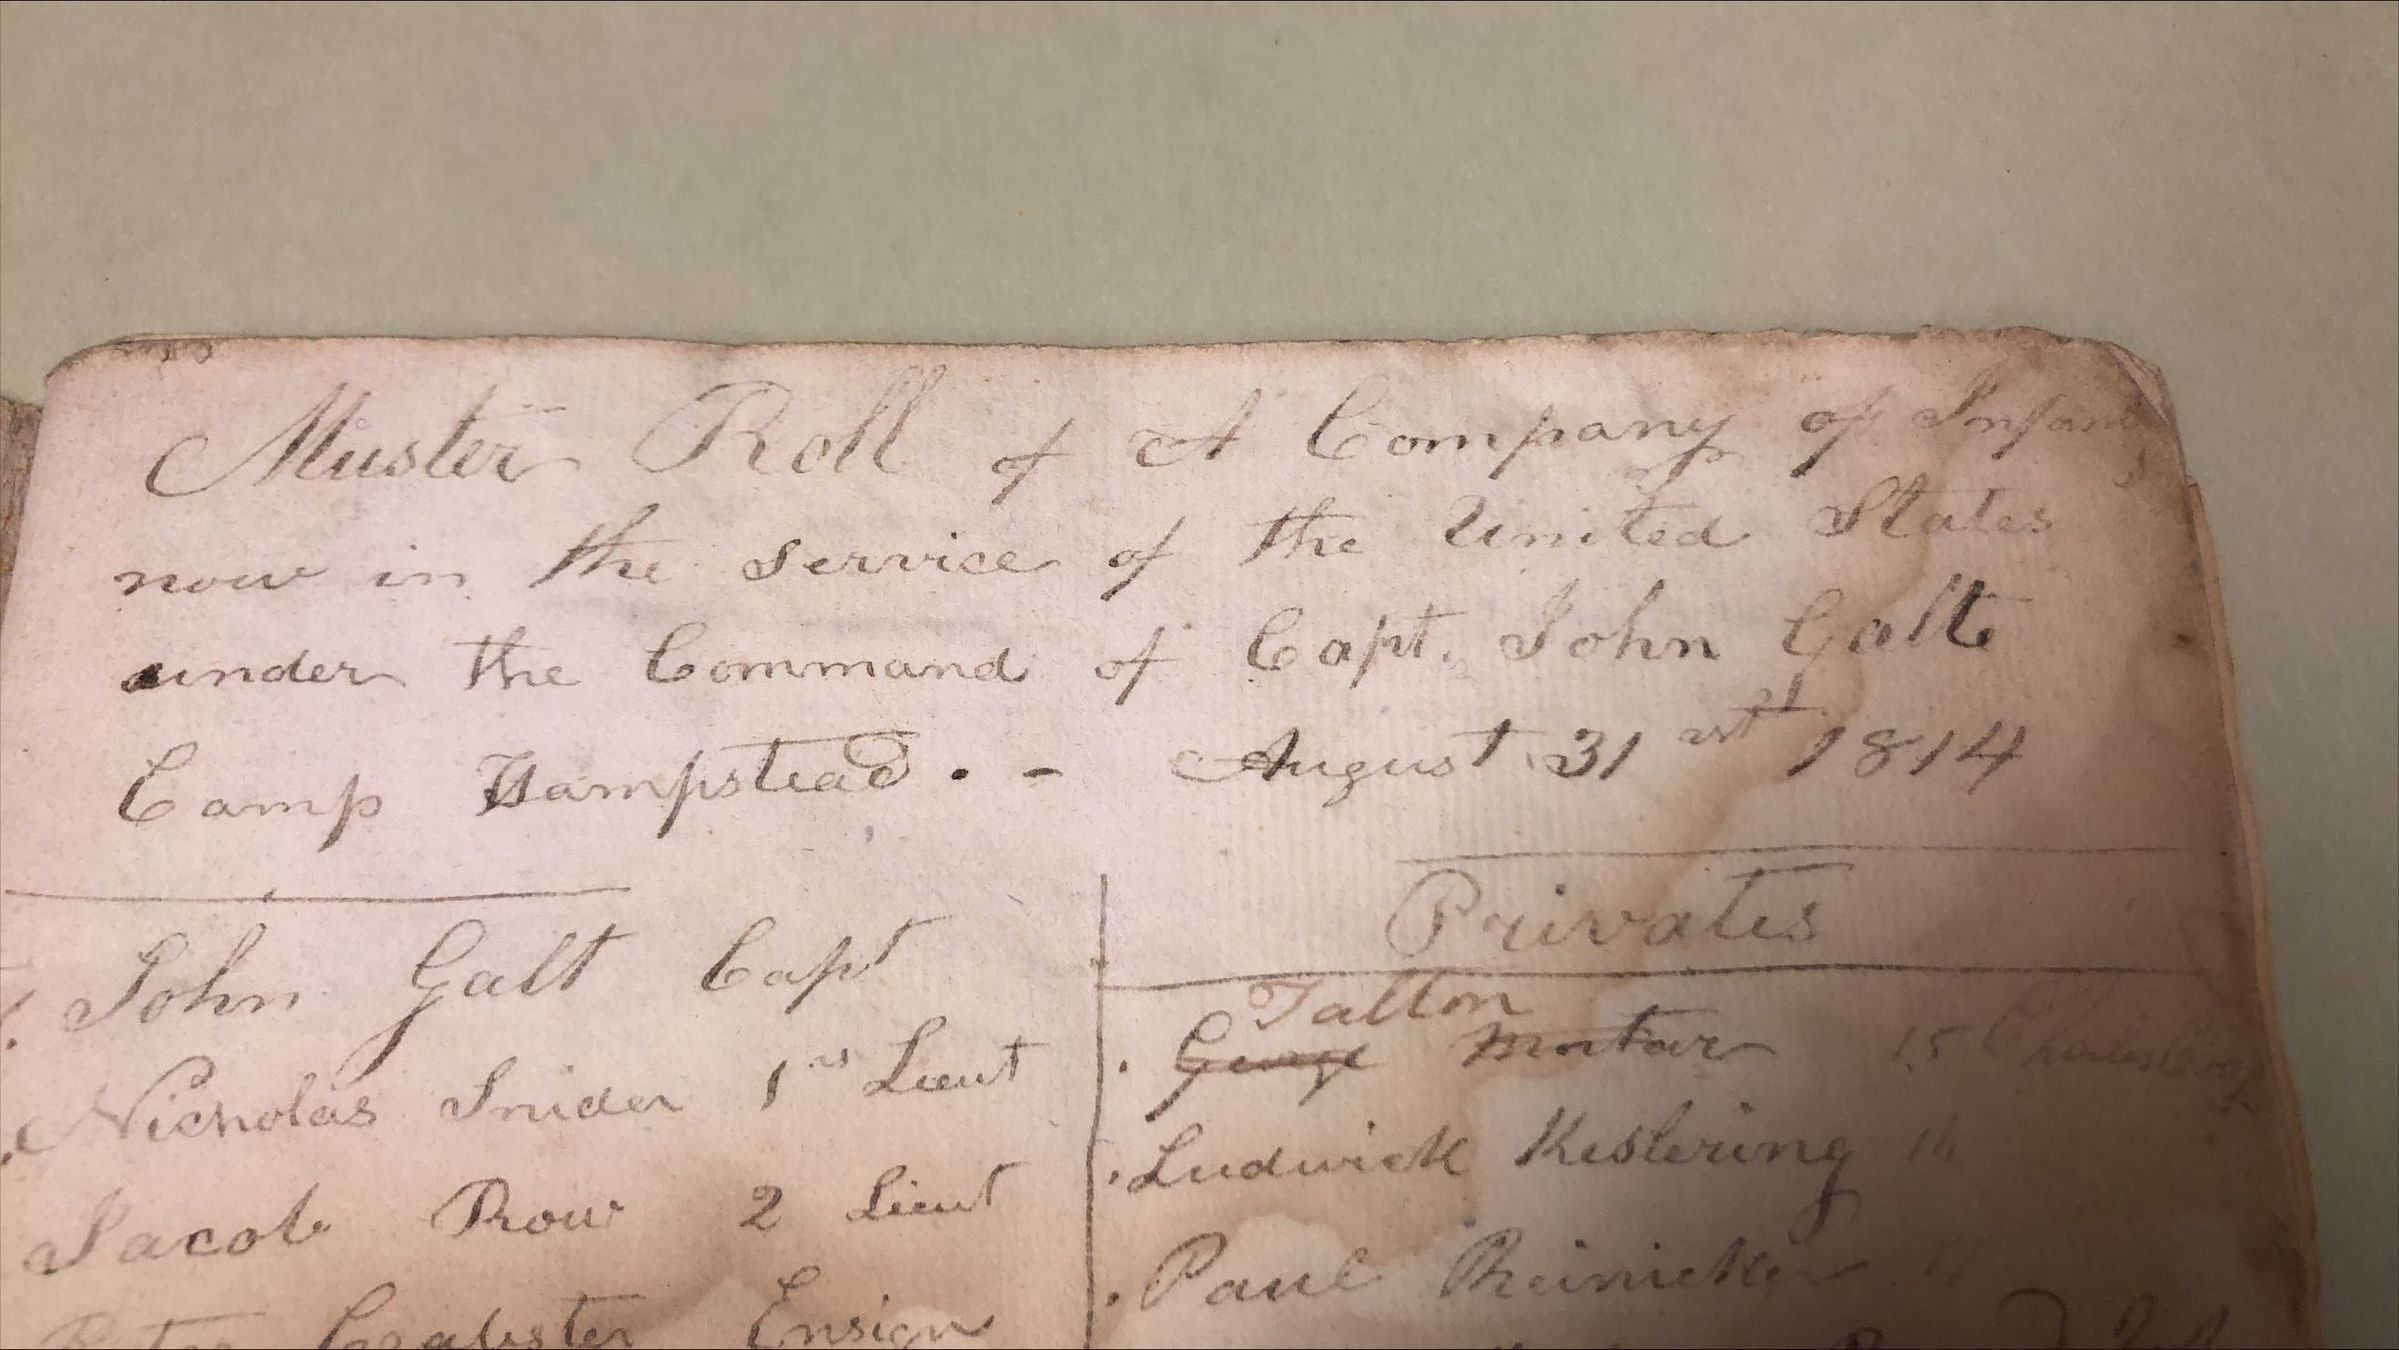 Muster Roll of A Company of Infant
now in the service of the United States
under the Command of Capt. John Galt
Camp Hampstead . - August 31 st 1814
John Galt Capt
Nicholas Snider 1 st Lieut
Jacob Row 2 Lieut
Ensign
Privates
Talton
. George Mortar 15 Charles
. Ludwick Keslering 16
. Paul Reinicker 17